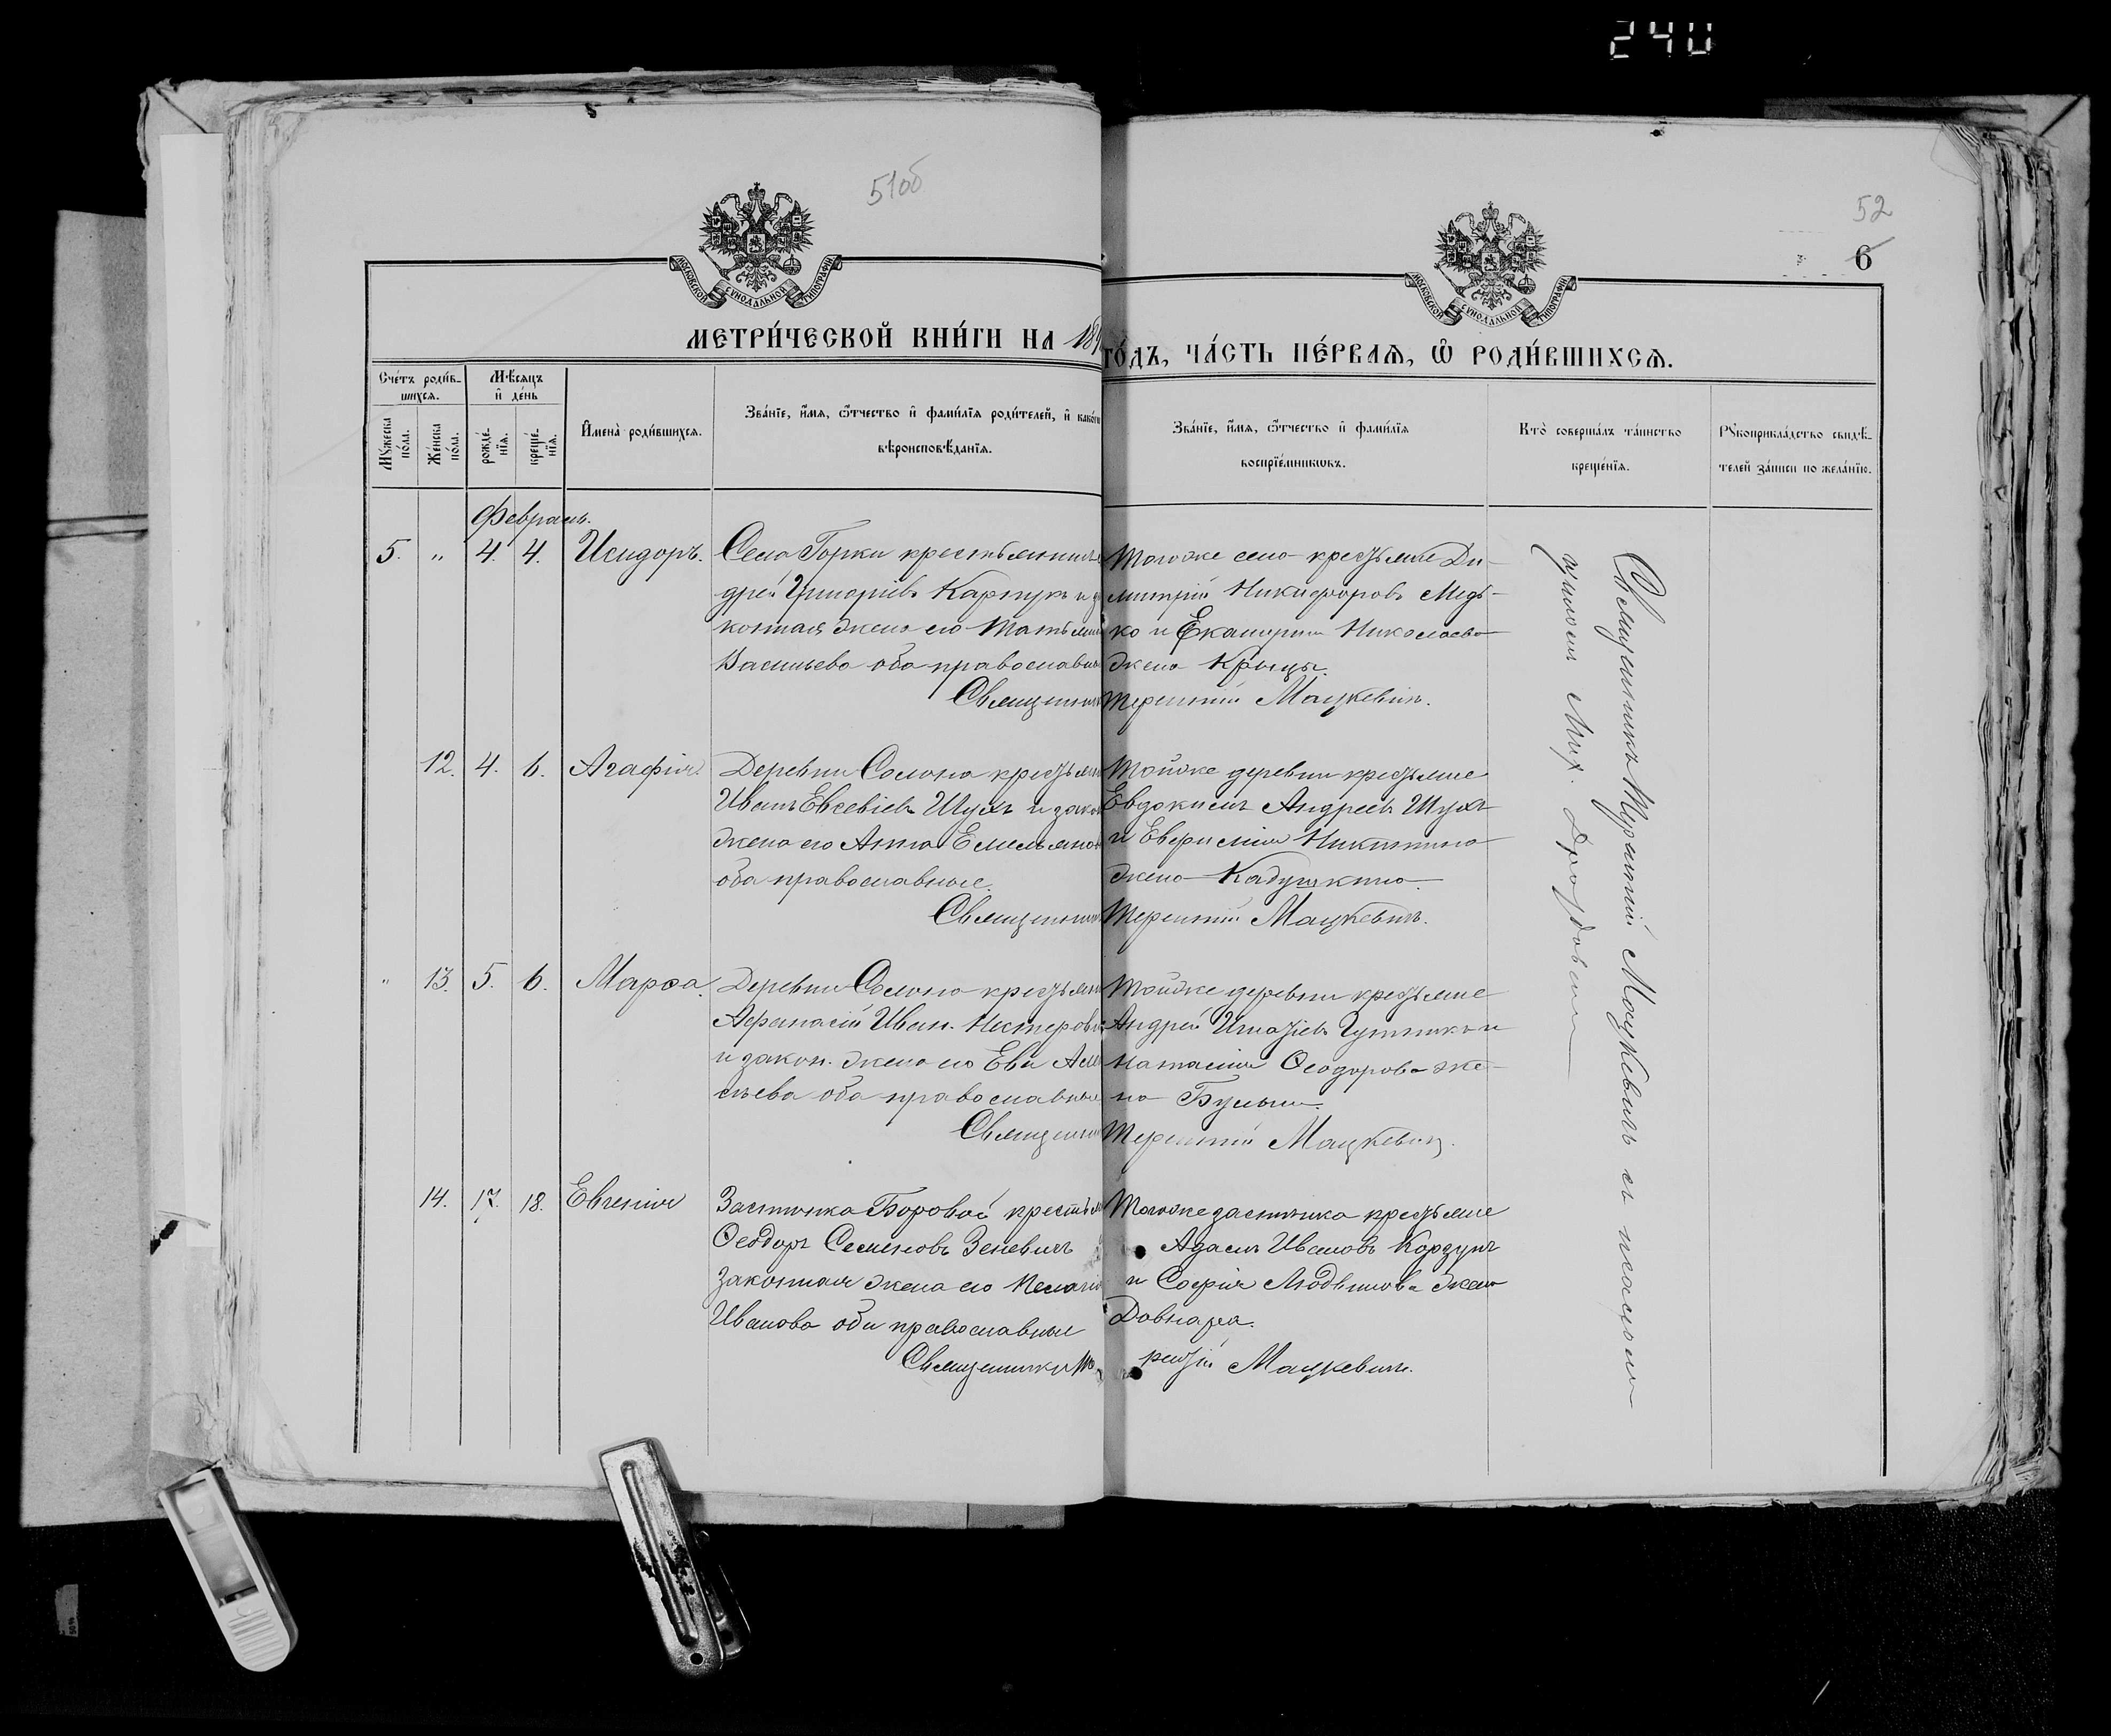 240
51об
52
6
МОСКОВСКОЙ СѴНОДАЛЬНОЙ ТИПОГРАФІИ
МОСКОВСКОЙ СѴНОДАЛЬНОЙ ТИПОГРАФІИ
МЕТРИ́ЧЕСКОЙ КНИ́ГИ НА 189
ГО́ДЪ, ЧА́СТЬ ПЕ́РВАѦ, Ѡ РОДИ́ВШИХСѦ.
Сче́тъ роди́в-
шихсѧ.
Мѣ́сѧцъ
и҆ де́нь
Мꙋ́жеска
по́ла.
Же́нска
по́ла.
рожде́-
нїѧ.
креще́-
нїѧ.
И҆мена̀ роди́вшихсѧ.
Зва́нїе, и҆́мѧ, ѻ҆́тчество и҆ фами́лїѧ роди́телей, и҆ како́гѡ
вѣроисповѣ́данїѧ.
Зва́нїе, и҆́мѧ, ѻ҆́тчество и҆ фами́лїѧ
воспрїе́мникѡвъ.
Кто̀ соверша́лъ та́инство
креще́нїѧ.
Рꙋкоприкла́дство свидѣ́-
телей за́писи по жела́нїю.
Февраль.
5. " 4. 4. Исидоръ. Села Горки крестьянинъ
дрей Григоріевъ Карпукъ и за
конная жена его Татьяна
Васильева оба православные
Священникъ
Тогоже села крестьяне Ди-
митрій Никифоровъ Медь-
ко и Екатерина Николаева
жена Крицы.
Терентій Мацкевичъ.
12. 4. 6. Агафія. Деревни Солона крестьянинъ
Иванъ Евсевіевъ Шухъ и закон
жена его Анна Емельянова
оба православные.
Священникъ
Тойже деревни крестьяне
Евдокимъ Андреевъ Шухъ
и Евфимія Никитина
жена Кадушкина.
Терентій Мацкевичъ.
" 13. 5. 6. Марѳа. Деревни Солона крестьянинъ
Афанасій Иван. Нестерович
и закон. жена его Ева Але
сѣева оба православные
Священникъ
Тойже деревни крестьяне
Андрей Игнатіевъ и
Наталія Ѳеодорова же-
на
Терентій Мацкевичъ.
14. 17. 18. Евгенія Застѣнка Боровой крестьян
Ѳеодоръ Семеновъ Зеневичъ
законная жена его Пелагія
Иванова оба православные
Священникъ Те
Тогоже застѣнка крестьяне
Адамъ Ивановъ Корзунъ
и Софія Людвикова жена
Довнара.
рентій Мацкевичъ.
Священникъ Терентій Мацкевичъ съ псалом
щикомъ Мих. Дроздовымъ